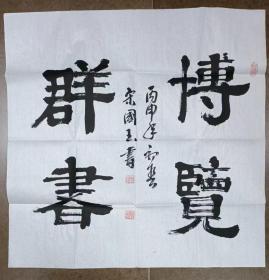 博覽
群書
丙申年初春
宋國玉書